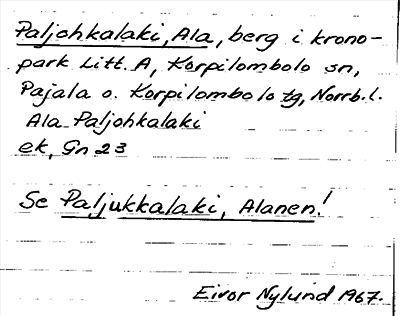 Paljohkalaki, Ala, berg i krono-
park Litt. A, Korpilombolo sn,
Pajala o. Korpilombolo tg, Norrb. l.
Ala Paljohkalaki
ek, Gn 23
Se Paljukkalaki, Alanen!
Eivor Nylund 1967.